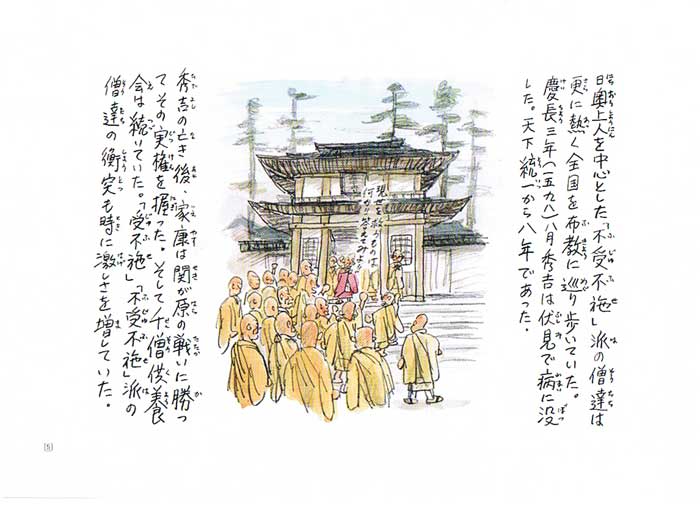 日奥上人を中心とした「不受不施」派の僧達は
更に熱く全国を布教に巡り歩いていた。
慶長三年(一五九八)八月秀吉は伏見で病に没
した。天下統一から八年であった。
現世を救うものは
何か!答えてみよ!
秀吉の亡き後、家康は関が原の戦いに勝っ
てその実権を握った。そして千僧供養
会は続いていた。「受不施」「不受不施」派の
僧達の衝突も時に激しさを増していた。
[5]